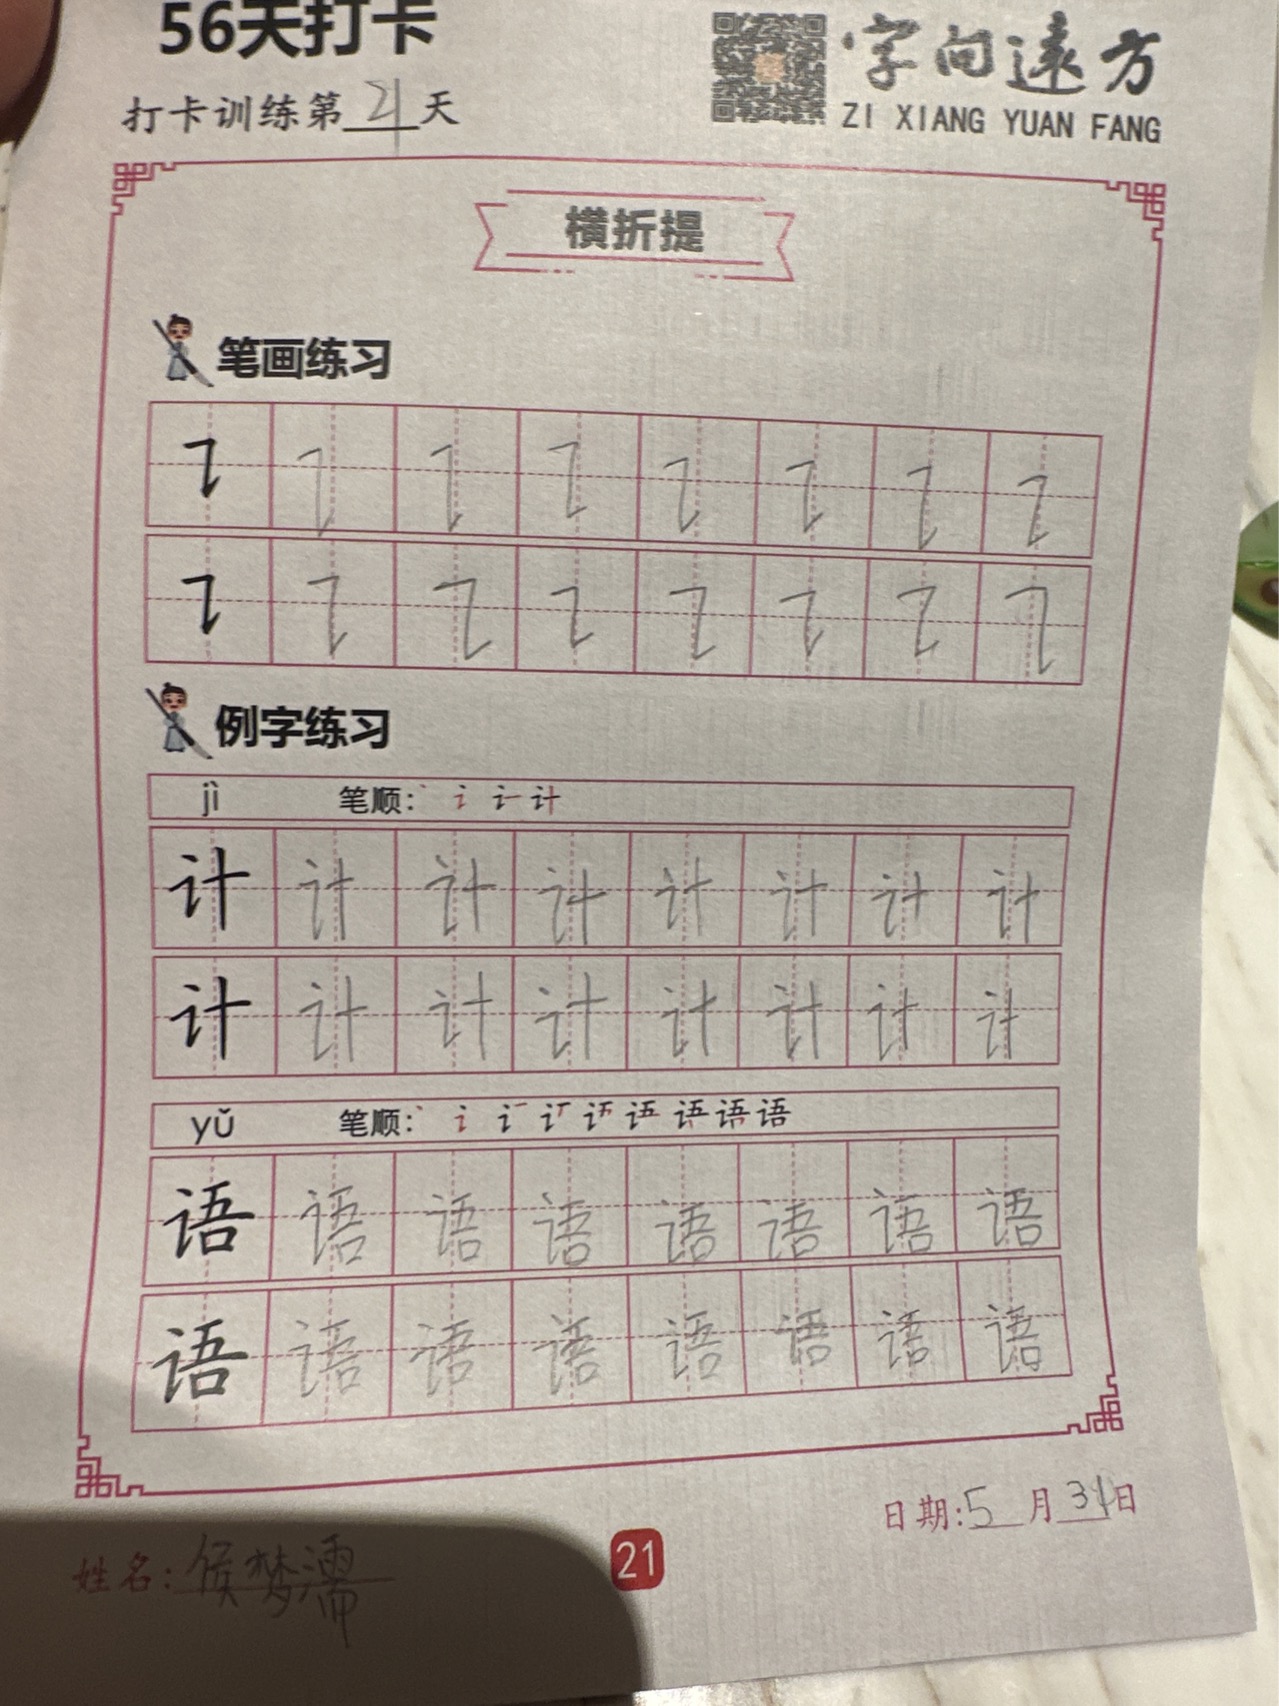 56天打卡
字向远方
打卡训练第21天
ZI XIANG YUAN FANG
横折提
笔画练习
㇊ ㇊ ㇊ ㇊ ㇊ ㇊ ㇊ ㇊
㇊ ㇊ ㇊ ㇊ ㇊ ㇊ ㇊ ㇊
例字练习
jì 笔顺:
计 计 计 计 计 计 计 计
计 计 计 计 计 计 计 计
yǔ 笔顺:
语 语 语 语 语 语 语 语
语 语 语 语 语 语 语 语
日期:5月31日
姓名:侯梦濡
21